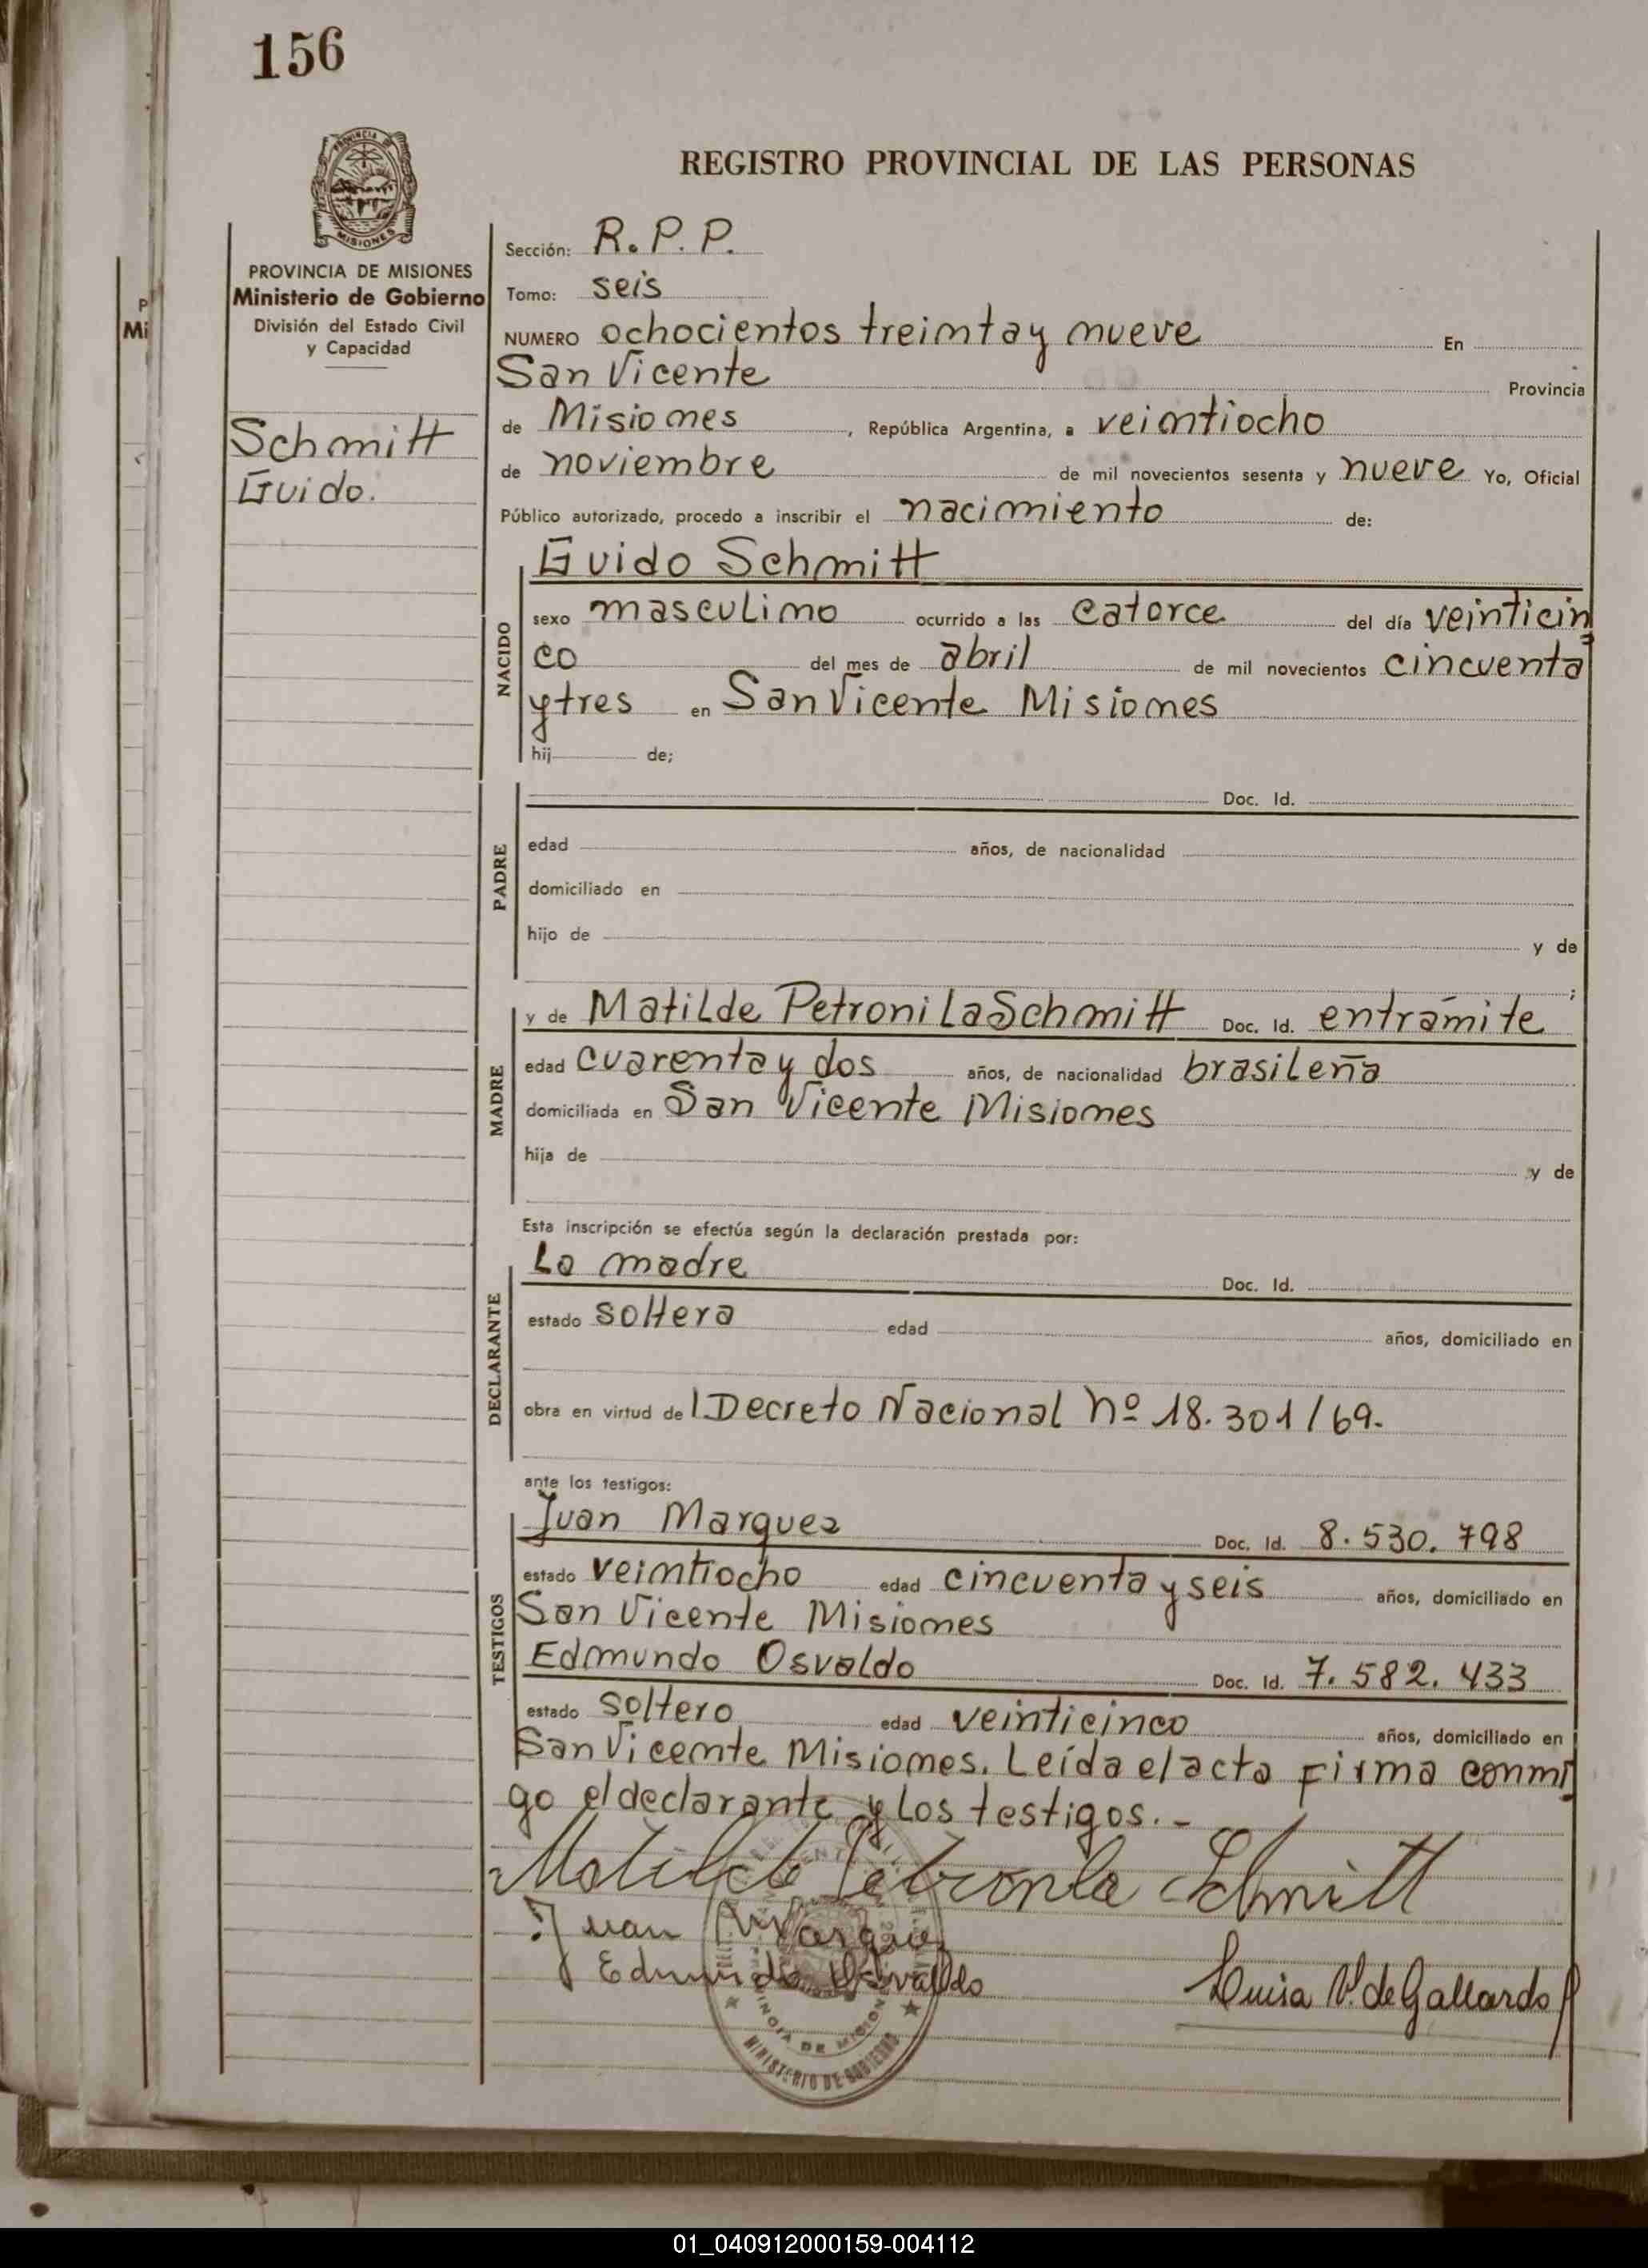 156
PROVINCIA
MISIONES
REGISTRO PROVINCIAL DE LAS PERSONAS
PROVINCIA DE MISIONES
Ministerio de Gobierno
División del Estado Civil
y Capacidad
Schmitt
Guido.
P
Mi
Sección: R.P.P.
Tomo: seis
NUMERO ochocientos treinta y nueve En
San Vicente Provincia
de Misiones, República Argentina, a veintiocho
de noviembre de mil novecientos sesenta y nueve Yo, Oficial
Público autorizado, procedo a inscribir el nacimiento de:
NACIDO
Guido Schmitt
sexo masculino ocurrido a las catorce del día veinticin
co del mes de abril de mil novecientos cincuenta
y tres en San Vicente Misiones
hij de;
PADRE
Doc. Id.
edad años, de nacionalidad
domiciliado en
hijo de y de
;
MADRE
y de Matilde Petronila Schmitt Doc. Id. en trámite
edad cuarenta y dos años, de nacionalidad brasileña
domiciliada en San Vicente Misiones
hija de y de
Esta inscripción se efectúa según la declaración prestada por:
DECLARANTE
La madre Doc. Id.
estado soltera edad años, domiciliado en
obra en virtud del Decreto Nacional nº 18.301/69.
ante los testigos:
TESTIGOS
Juan Marquez Doc. Id. 8.530.798
estado veintiocho edad cincuenta y seis años, domiciliado en
San Vicente Misiones
Edmundo Osvaldo Doc. Id. 7.582.433
estado soltero edad veinticinco años, domiciliado en
San Vicente Misiones. Leída el acta firma conmi
go el declarante y los testigos.-
Matilde Petronila Schmitt
Juan Marquez
Edmundo Osvaldo
Luisa V. de Gallardo
MINISTERIO DE GOBIERNO
01_040912000159-004112